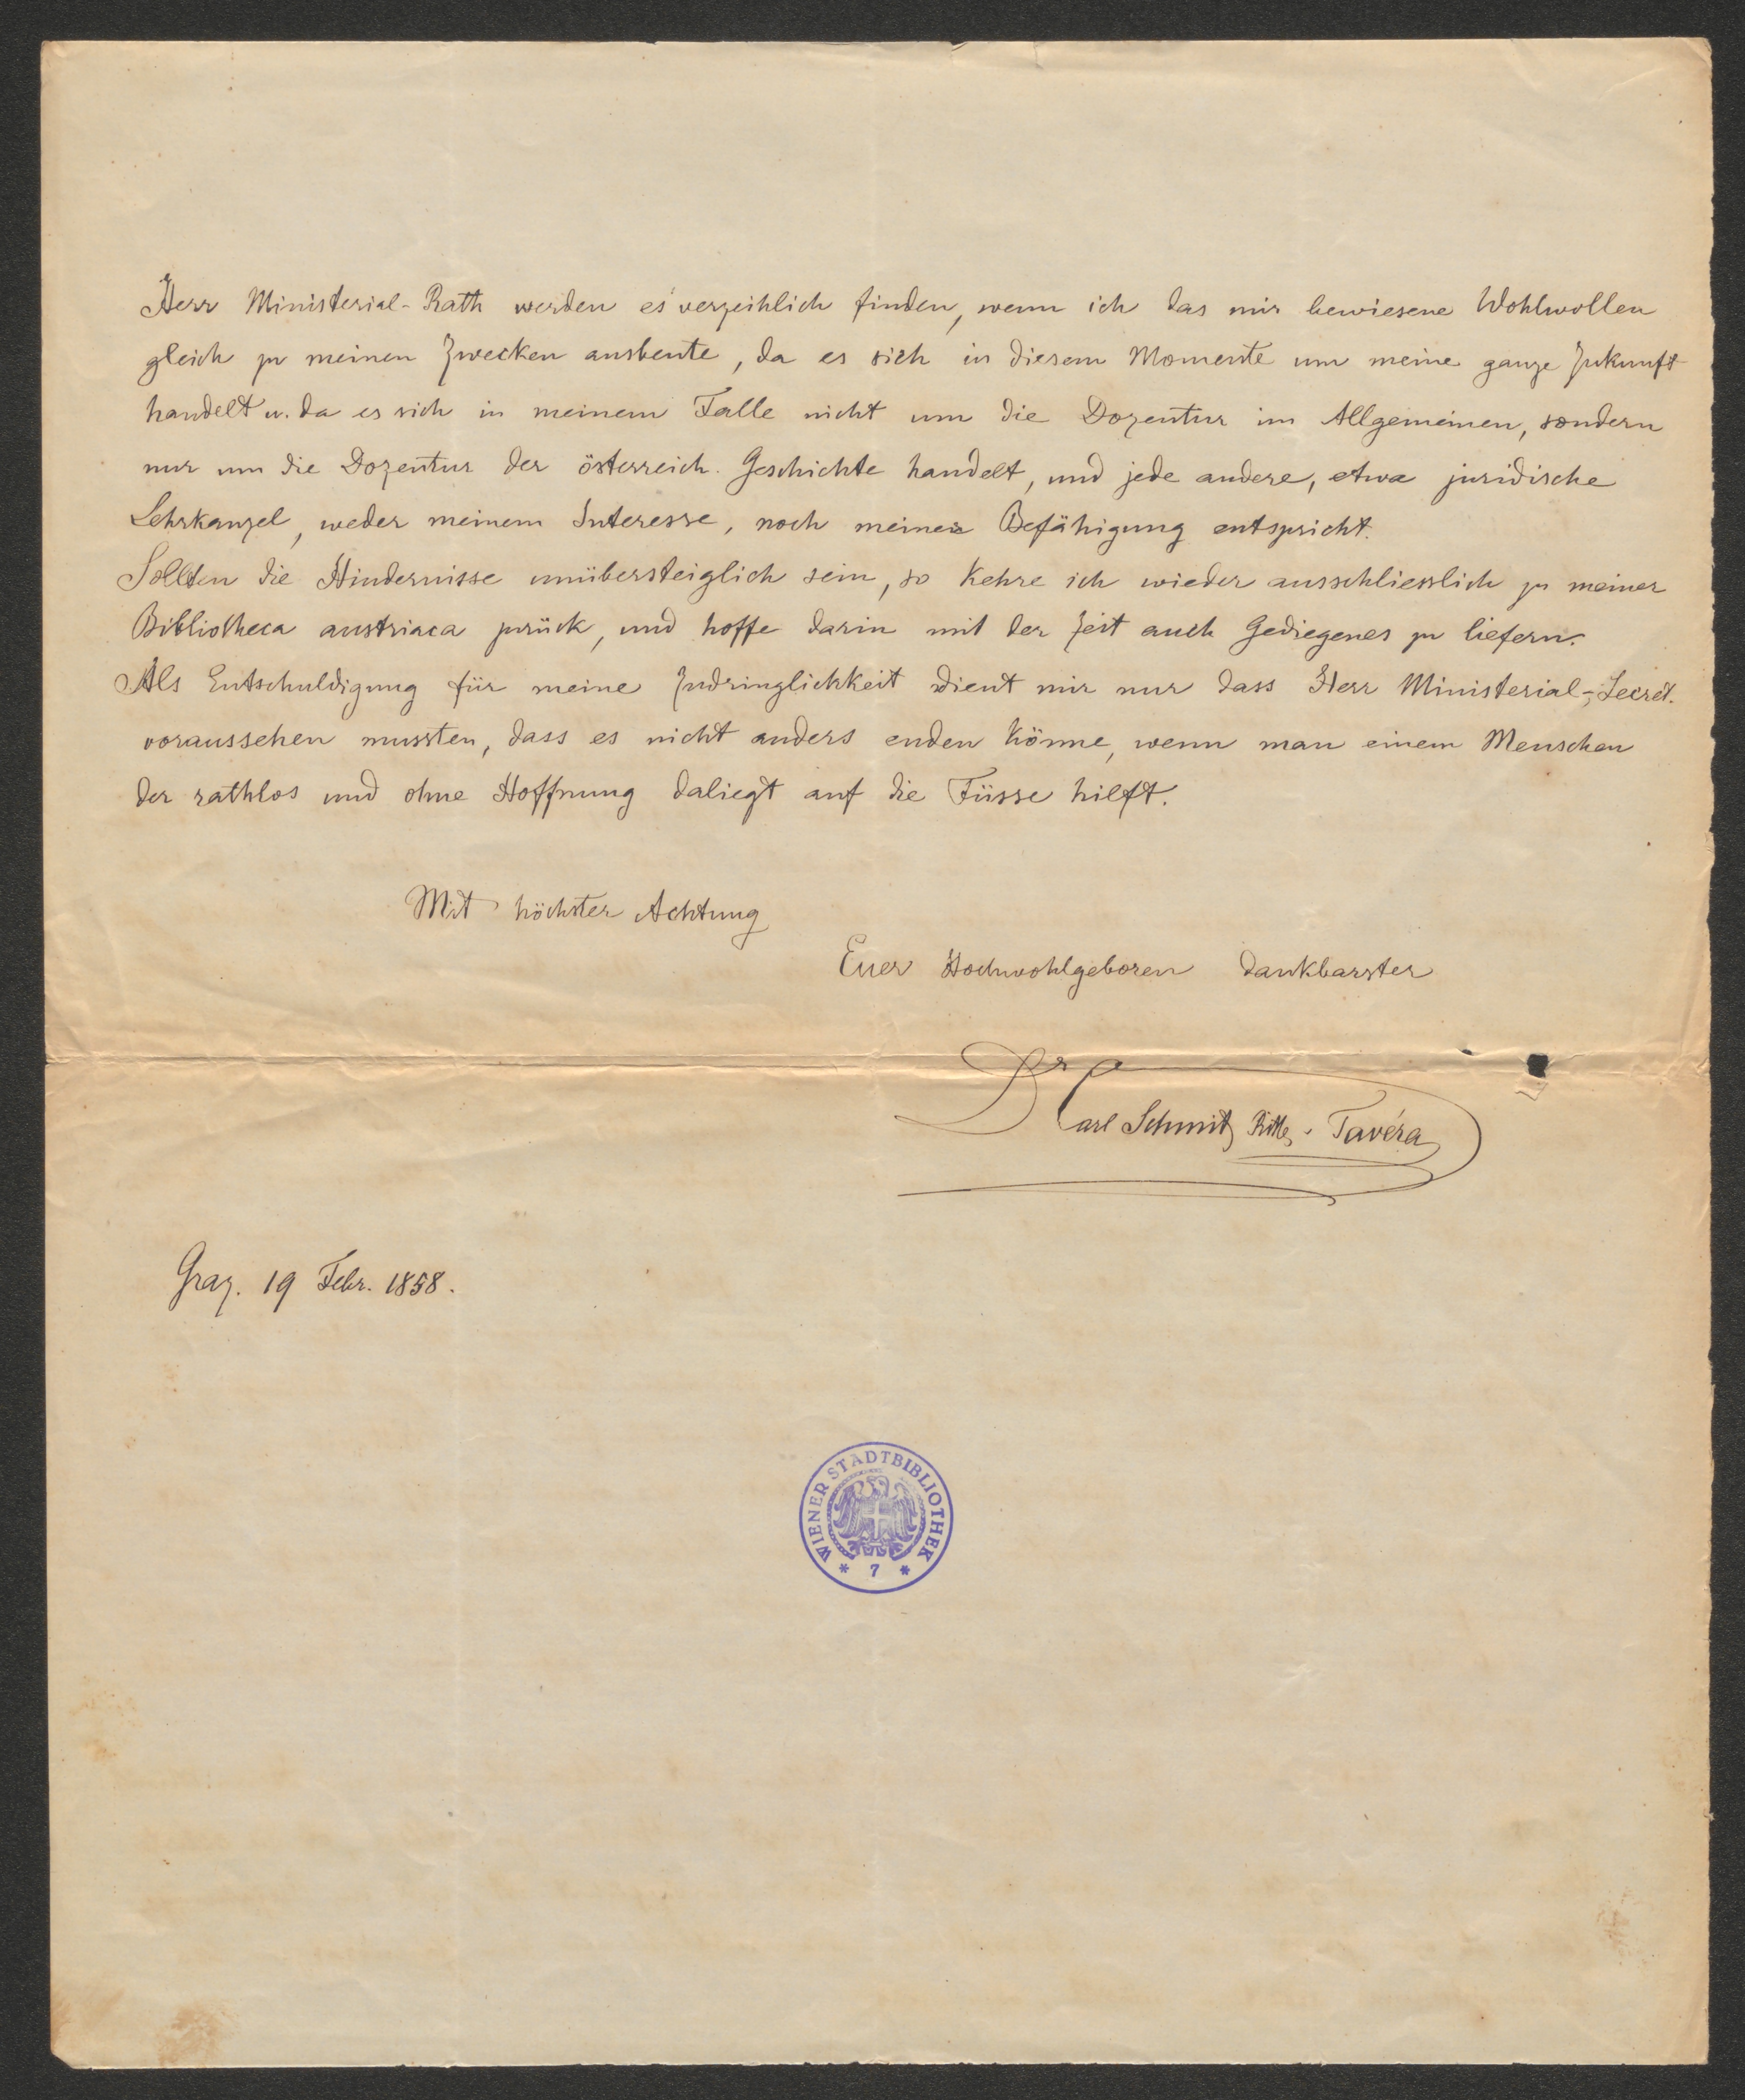 Herr Ministerial-Rath werden es verzeihlich finden, wenn ich das mir bewiesene Wohlwollen
gleich zu meinen Zwecken ausbeute, da es sich in diesem Momente um meine ganze Zukunft
handelt u. da es sich in meinem Falle nicht um die Dozentur im Allgemeinen, sondern
nur um die Dozentur der österreich. Geschichte handelt, und jede andere, etwa juridische
Lehrkanzel, weder meinem Interesse, noch meiner Befähigung entspricht.
Sollten die Hindernisse unübersteiglich sein, so kehre ich wieder ausschliesslich zu meiner
Bibliotheca austriaca zurück, und hoffe darin mit der Zeit auch Gediegenes zu liefern.
Als Entschuldigung für meine Zudringlichkeit dient mir nur dass Herr Ministerial-Secret.
voraussehen mussten, dass es nicht anders enden könne, wenn man einem Menschen
der rathlos und ohne Hoffnung daliegt auf die Füsse hilft.
Mit höchster Achtung
Euer Hochwohlgeboren dankbarster
Dr Carl Schmit Ritter v. Tavéra
Graz. 19 Febr. 1858.
WIENER STADTBIBLIOTHEK
* 7 *